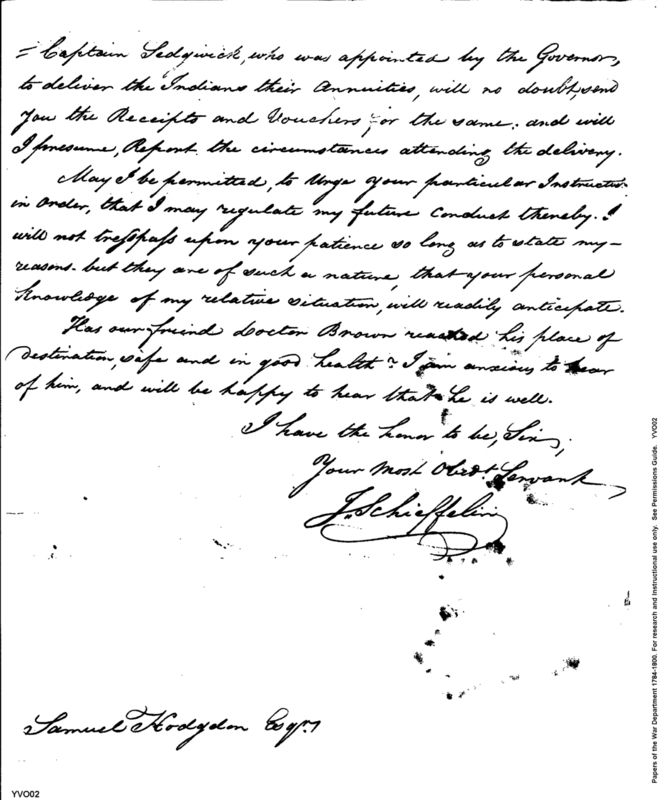 = Captain Sedgwick, who was appointed by the Governor,
to deliver the Indians their Annuities, will no doubt, send
you the Receipts and Vouchers for the same; and will
I presume, Report the circumstances attending the delivery.
May I be permitted, to Urge your particular
in order, that I may regulate my future Conduct thereby. I
will not tresspass upon your patience so long as to state my
reasons. but they are of such a nature, that your personal
knowledge of my relative situation, will readily anticipate.
Has our friend Doctor Brown reached his place of
destination, safe and in good health? I am anxious to hear
of him, and will be happy to hear that he is well.
I have the honor to be, Sir,
Your most Obedt. Servant
J. Schieffelin
Samuel Hodgdon Esqr.
YVO02
Papers of the War Department 1784-1800. For research and instructional use only. See Permissions Guide. YVO02